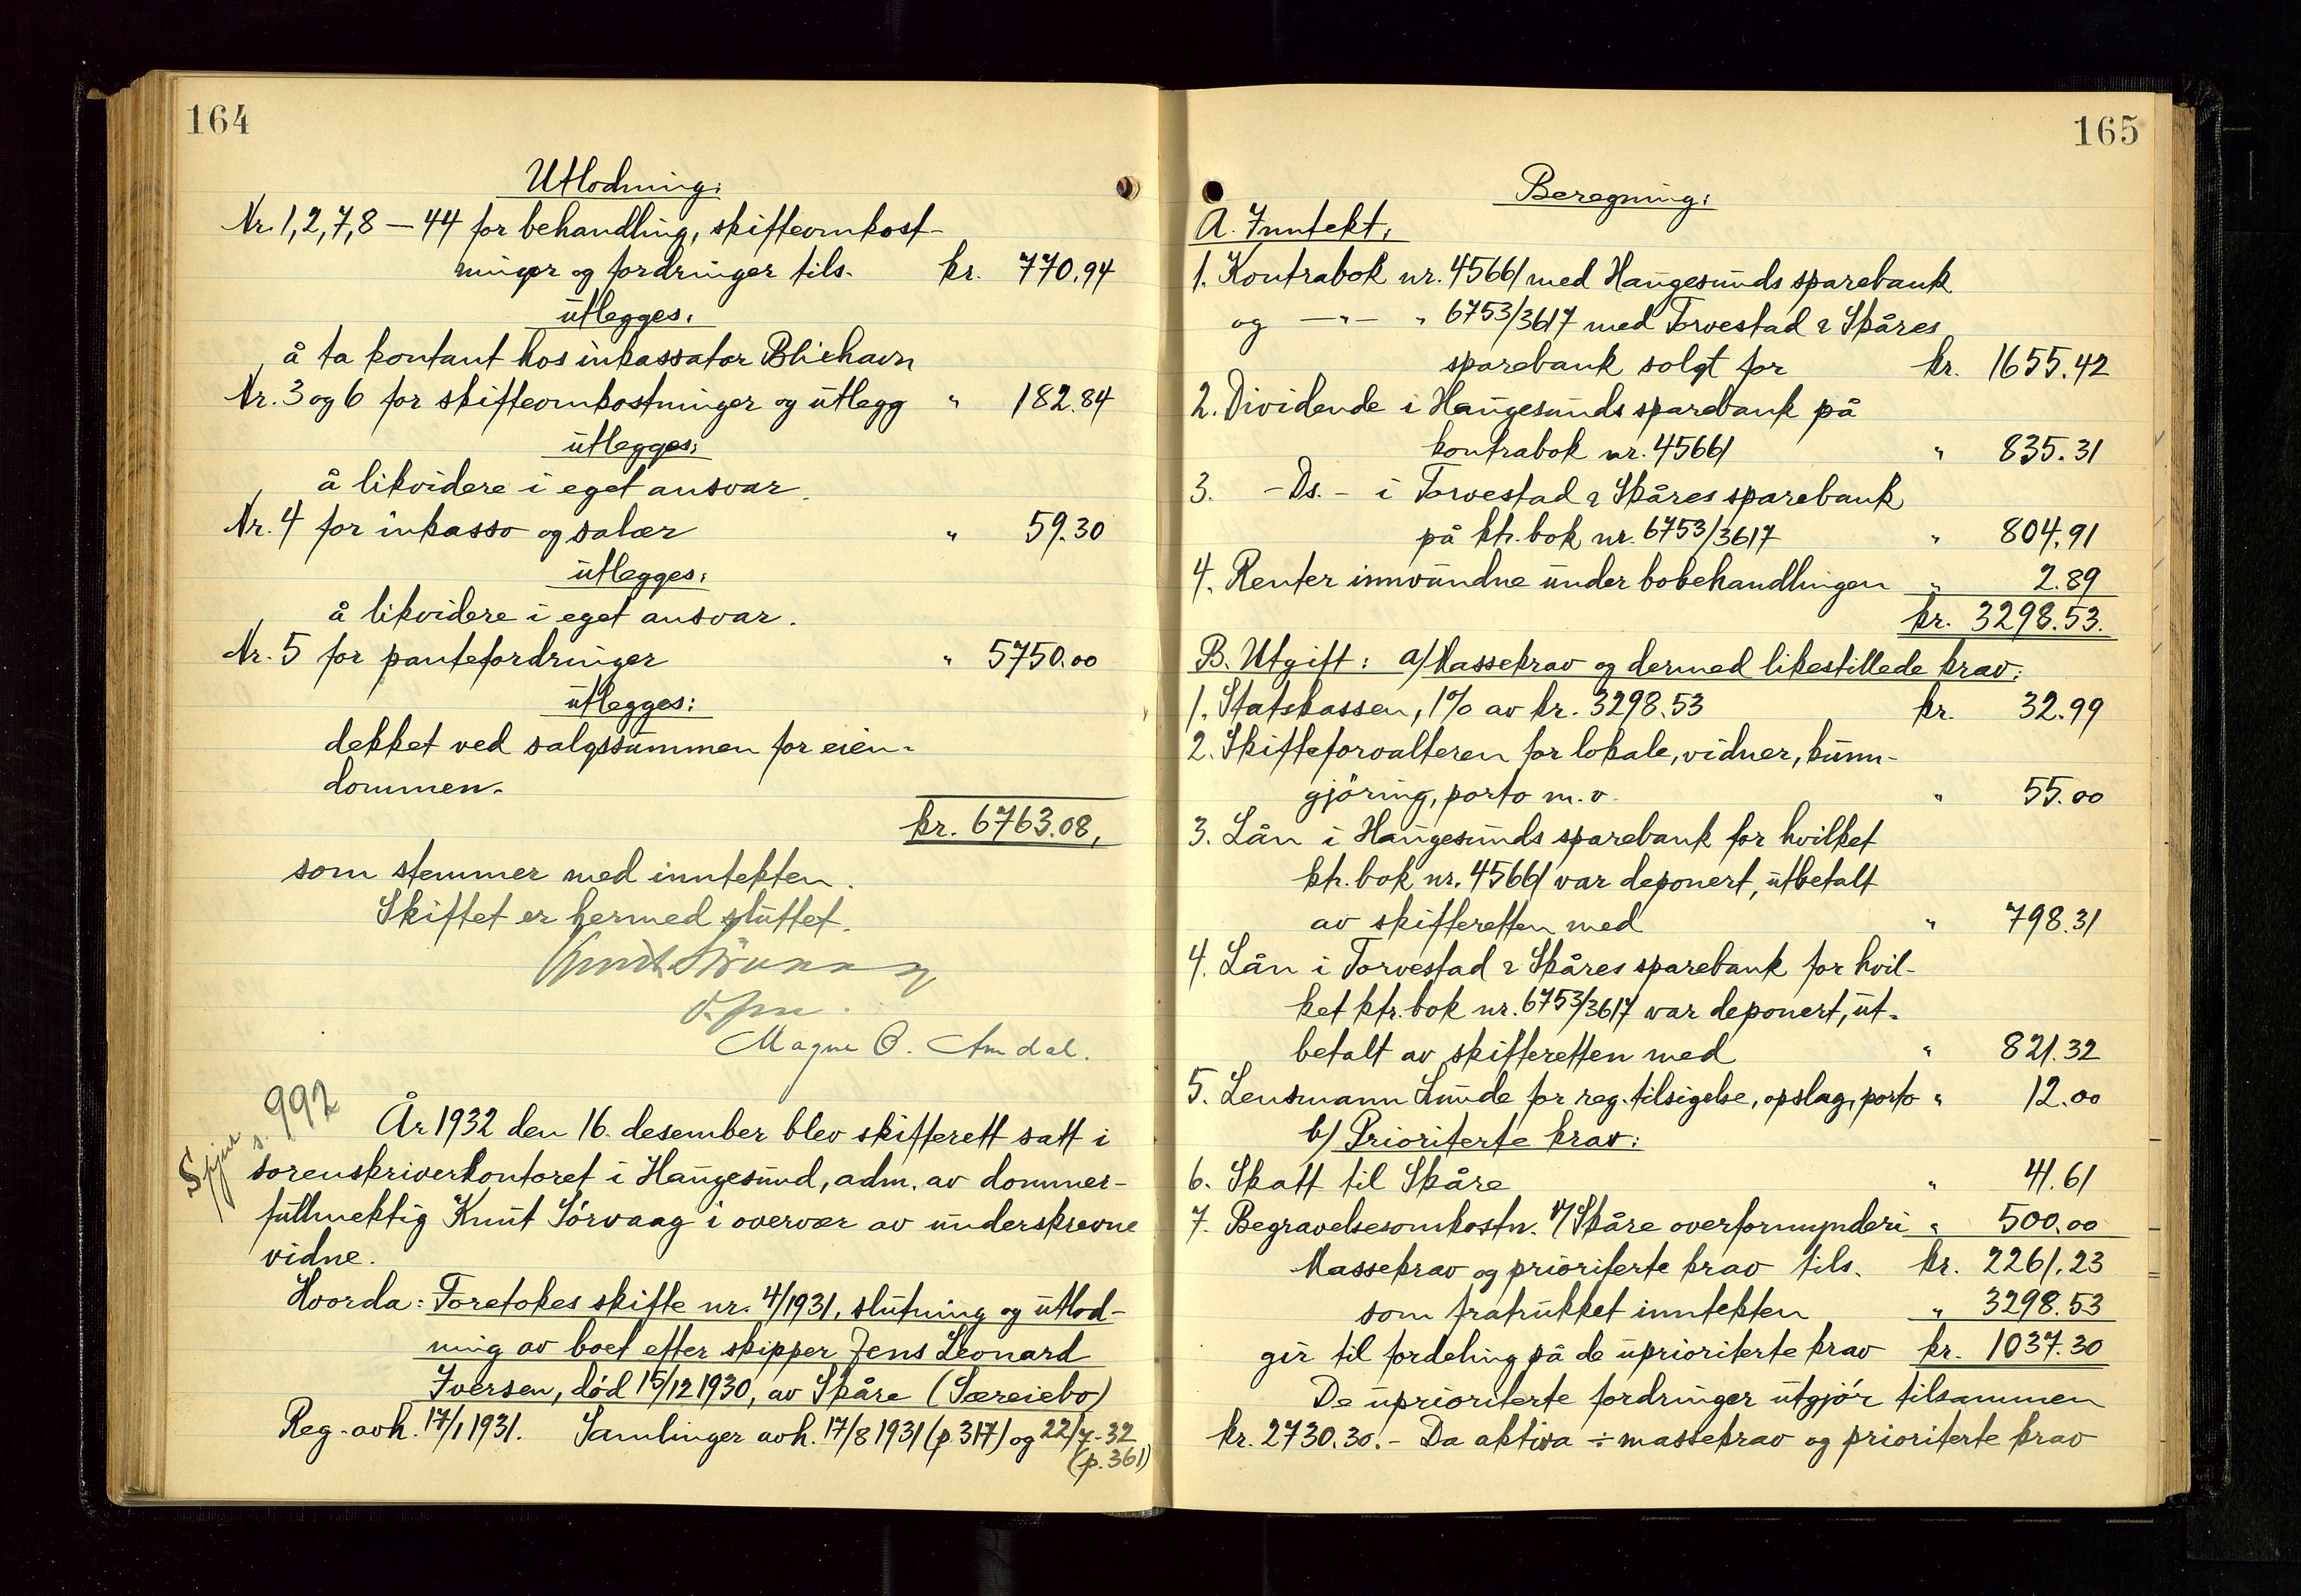 164
Utlodning:
Nr. 1, 2, 7, 8 – 44 for behandling, skifteomkost-
ninger og fordringer tils. kr. 770.94
utlegges:
å ta kontant hos inkassator Blixhavn
Nr. 3 og 6 for skifteomkostninger og utlegg " 182.84
utlegges:
å likvidere i eget ansvar.
Nr. 4 for inkasso og salær " 59.30
utlegges:
å likvidere i eget ansvar.
Nr. 5 for pantefordringer " 5750.00
utlegges:
dekket ved salgssummen for eien-
dommen.
kr. 6763.08,
som stemmer med inntekten.
Skiftet er hermed sluttet.
Knut Sörvaag
Magne O. Amdal.
s. 992
År 1932 den 16. desember blev skifterett satt i
sorenskriverkontoret i Haugesund, adm. av dommer-
fullmektig Knut Sörvaag i overvær av underskrevne
vidne.
Hvorda: Foretokes skifte nr. 4/1931, slutning og utlod-
ning av boet efter skipper Jens Leonard
Iversen, död 15/12 1930, av Skåre (Særeiebo)
Reg. avh. 17/1 1931. Samlinger avh. 17/8 1931 (p. 317) og 22/7-32
(p. 361)
165
Beregning:
A. Inntekt.
1. Kontrabok nr. 45661 med Haugesunds sparebank
og —"— " 6753/3617 med Torvestad & Skåres
sparebank solgt for kr. 1655.42
2. Dividende i Haugesunds sparebank på
kontrabok nr. 45661 " 835.31
3. - Ds. - i Torvestad & Skåres sparebank
på ktr. bok nr. 6753/3617 " 804.91
4. Renter innvundne under bobehandlingen " 2.89
kr. 3298.53.
B. Utgift: a/ Massekrav og dermed likestillede krav:
1. Statskassen, 1% av kr. 3298.53 kr. 32.99
2. Skifteforvalteren for lokale, vidner, kunn-
gjöring, porto m.v. " 55.00
3. Lån i Haugesunds sparebank for hvilket
ktr. bok nr. 45661 var deponert, utbetalt
av skifteretten med " 798.31
4. Lån i Torvestad & Skåres sparebank for hvil-
ket ktr. bok nr. 6753/3617 var deponert, ut-
betalt av skifteretten med " 821.32
5. Lensmann Lunde for reg. tilsigelse, opslag, porto " 12.00
b/ Prioriterte krav:
6. Skatt til Skåre " 41.61
7. Begravelsesomkostn. v/ Skåre overformynderi " 500.00
Massekrav og prioriterte krav tils. kr. 2261.23
som fratrukket inntekten " 3298.53
gir til fordeling på de uprioriterte krav kr. 1037.30
De uprioriterte fordringer utgjör tilsammen
kr. 2730.30. - Da aktiva ÷ massekrav og prioriterte krav